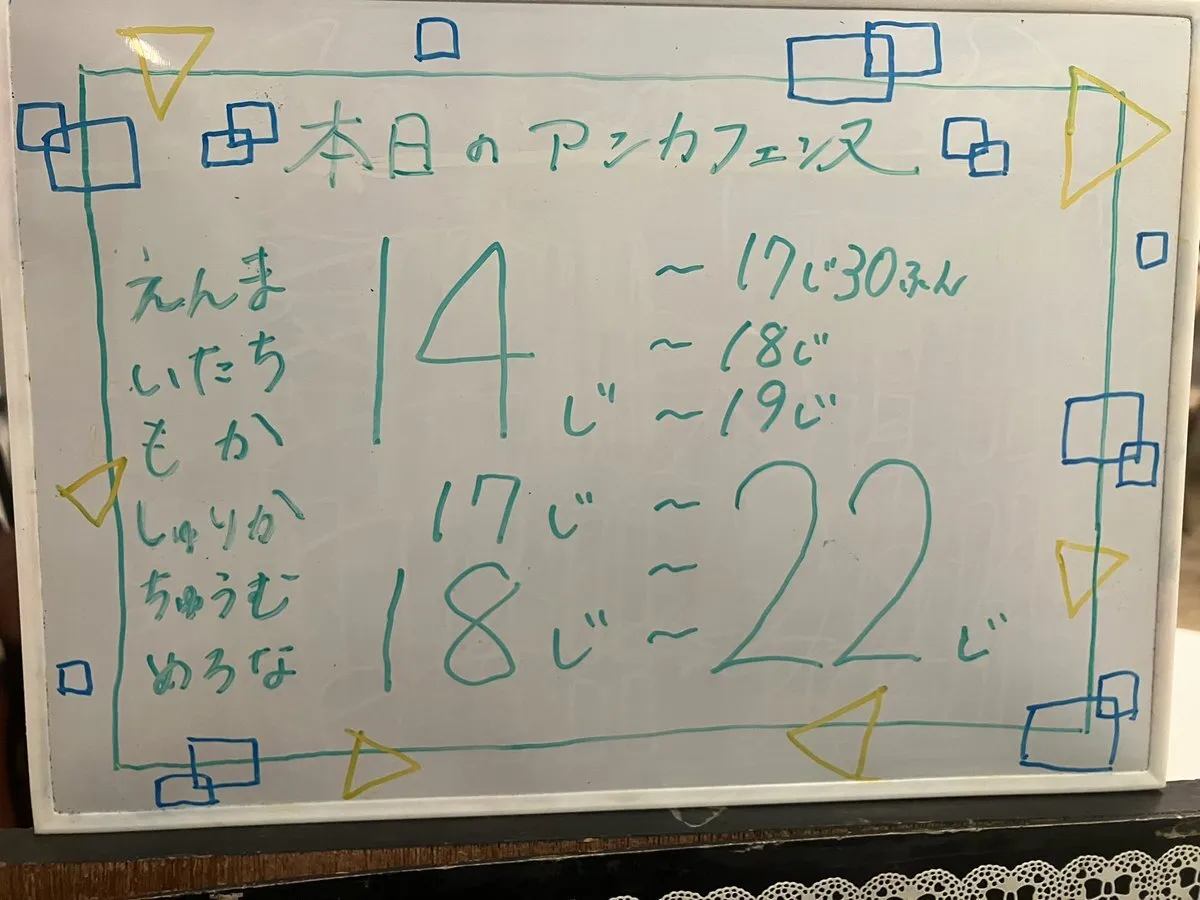 本日のアンカフェンヌ
えんま 14じ ～17じ30ふん
いたち ～18じ
もか ～19じ
しゅりか 17じ ～22じ
ちゅうむ 18じ ～
めろな ～